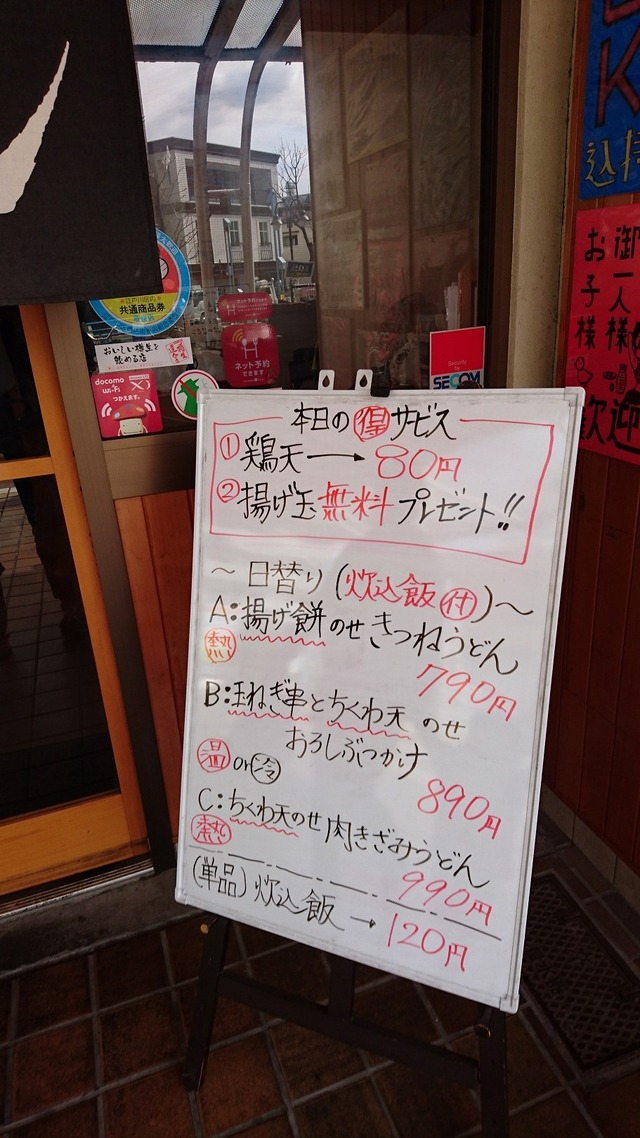 本日の得サービス
①鶏天→80円
②揚げ玉無料プレゼント!!
〜日替り(炊込飯付)〜
A:揚げ餅のせきつねうどん
熱
790円
B:玉ねぎ串とちくわ天のせ
おろしぶっかけ
温or冷
890円
C:ちくわ天のせ肉きざみうどん
熱
990円
(単品)炊込飯→120円
江戸川区の
共通商品券
おいしい樽生を
飲める店
docomo
Wi-Fi
つかえます。
ネット予約
できます
Security
by
SECOM
K
込
御一人様
お子様
歓迎